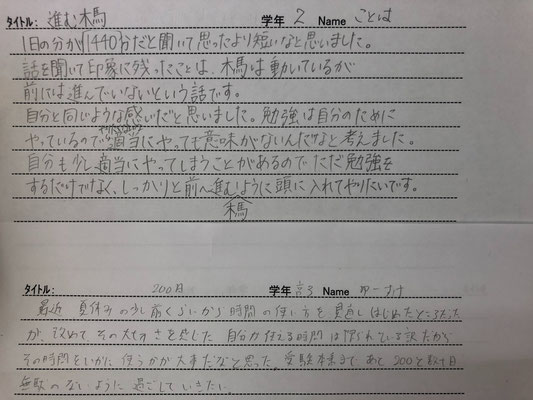 タイトル: 進む木馬 学年 2 Name ことは
1日の分が1440分だと聞いて思ったより短いなと思いました。
話を聞いて印象に残ったことは、木馬は動いているが
前には進んでいないという話です。
自分と同じような感いだと思いました。勉強は自分のために
やっているので適当にやっても意味がないんだなと考えました。
自分も少し適当にやってしまうことがあるのでただ勉強を
するだけでなく、しっかりと前へ進むように頭に入れてやりたいです。
木馬
タイトル: 200日 学年 高3 Name ゆーすけ
最近 夏休みの少し前くらいから時間の使い方を見直しはじめたところだった
が、改めてその大切さを感じた 自分が使える時間は限られている訳だから
その時間をいかに使うかが大事だなと思った。受験本番まであと200と数十日
無駄のないように過ごしていきたい。